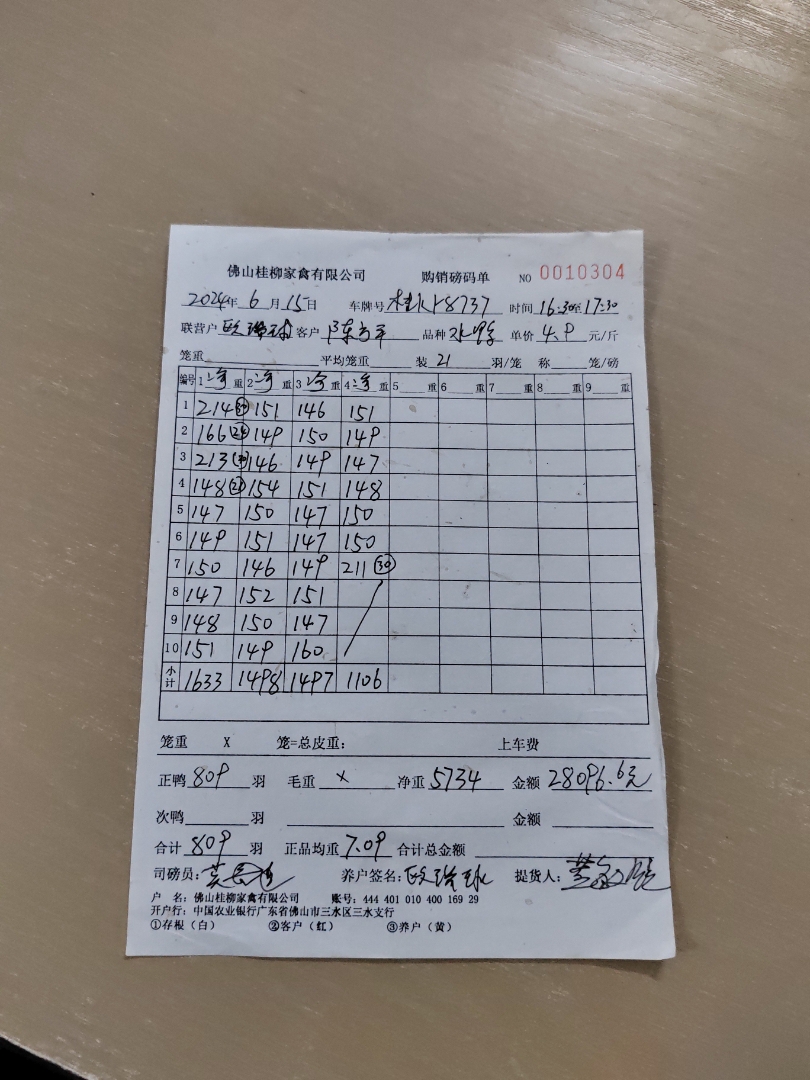 佛山桂柳家禽有限公司 购销磅码单 NO 0010304
2024年 6 月 15日 车牌号 8737 时间 16:30至17:30
联营户 欧 球 客户 陈 平 品种 水 单价 4.9 元/斤
笼重 平均笼重 装 21 羽/笼 称 笼/磅
编号 1 净 重 2 净 重 3 净 重 4 净 重 5 重 6 重 7 重 8 重 9 重
1 214 (30) 151 146 151
2 166 (24) 149 150 149
3 213 (30) 146 149 147
4 148 (21) 154 151 148
5 147 150 147 150
6 149 151 147 150
7 150 146 149 211 (30)
8 147 152 151
9 148 150 147
10 151 149 160
小计 1633 1498 1497 1106
笼重 X 笼=总皮重: 上车费
正鸭 809 羽 毛重 x 净重 5734 金额 28096.6元
次鸭 羽 金额
合计 809 羽 正品均重 7.09 合计总金额
司磅员: 养户签名: 欧 球 提货人:
户 名: 佛山桂柳家禽有限公司 账号: 444 401 010 400 169 29
开户行: 中国农业银行广东省佛山市三水区三水支行
①存根（白） ②客户（红） ③养户（黄）